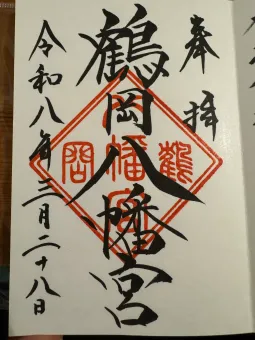 奉拝
鶴岡八幡宮
令和八年三月二十八日
鶴岡八幡宮